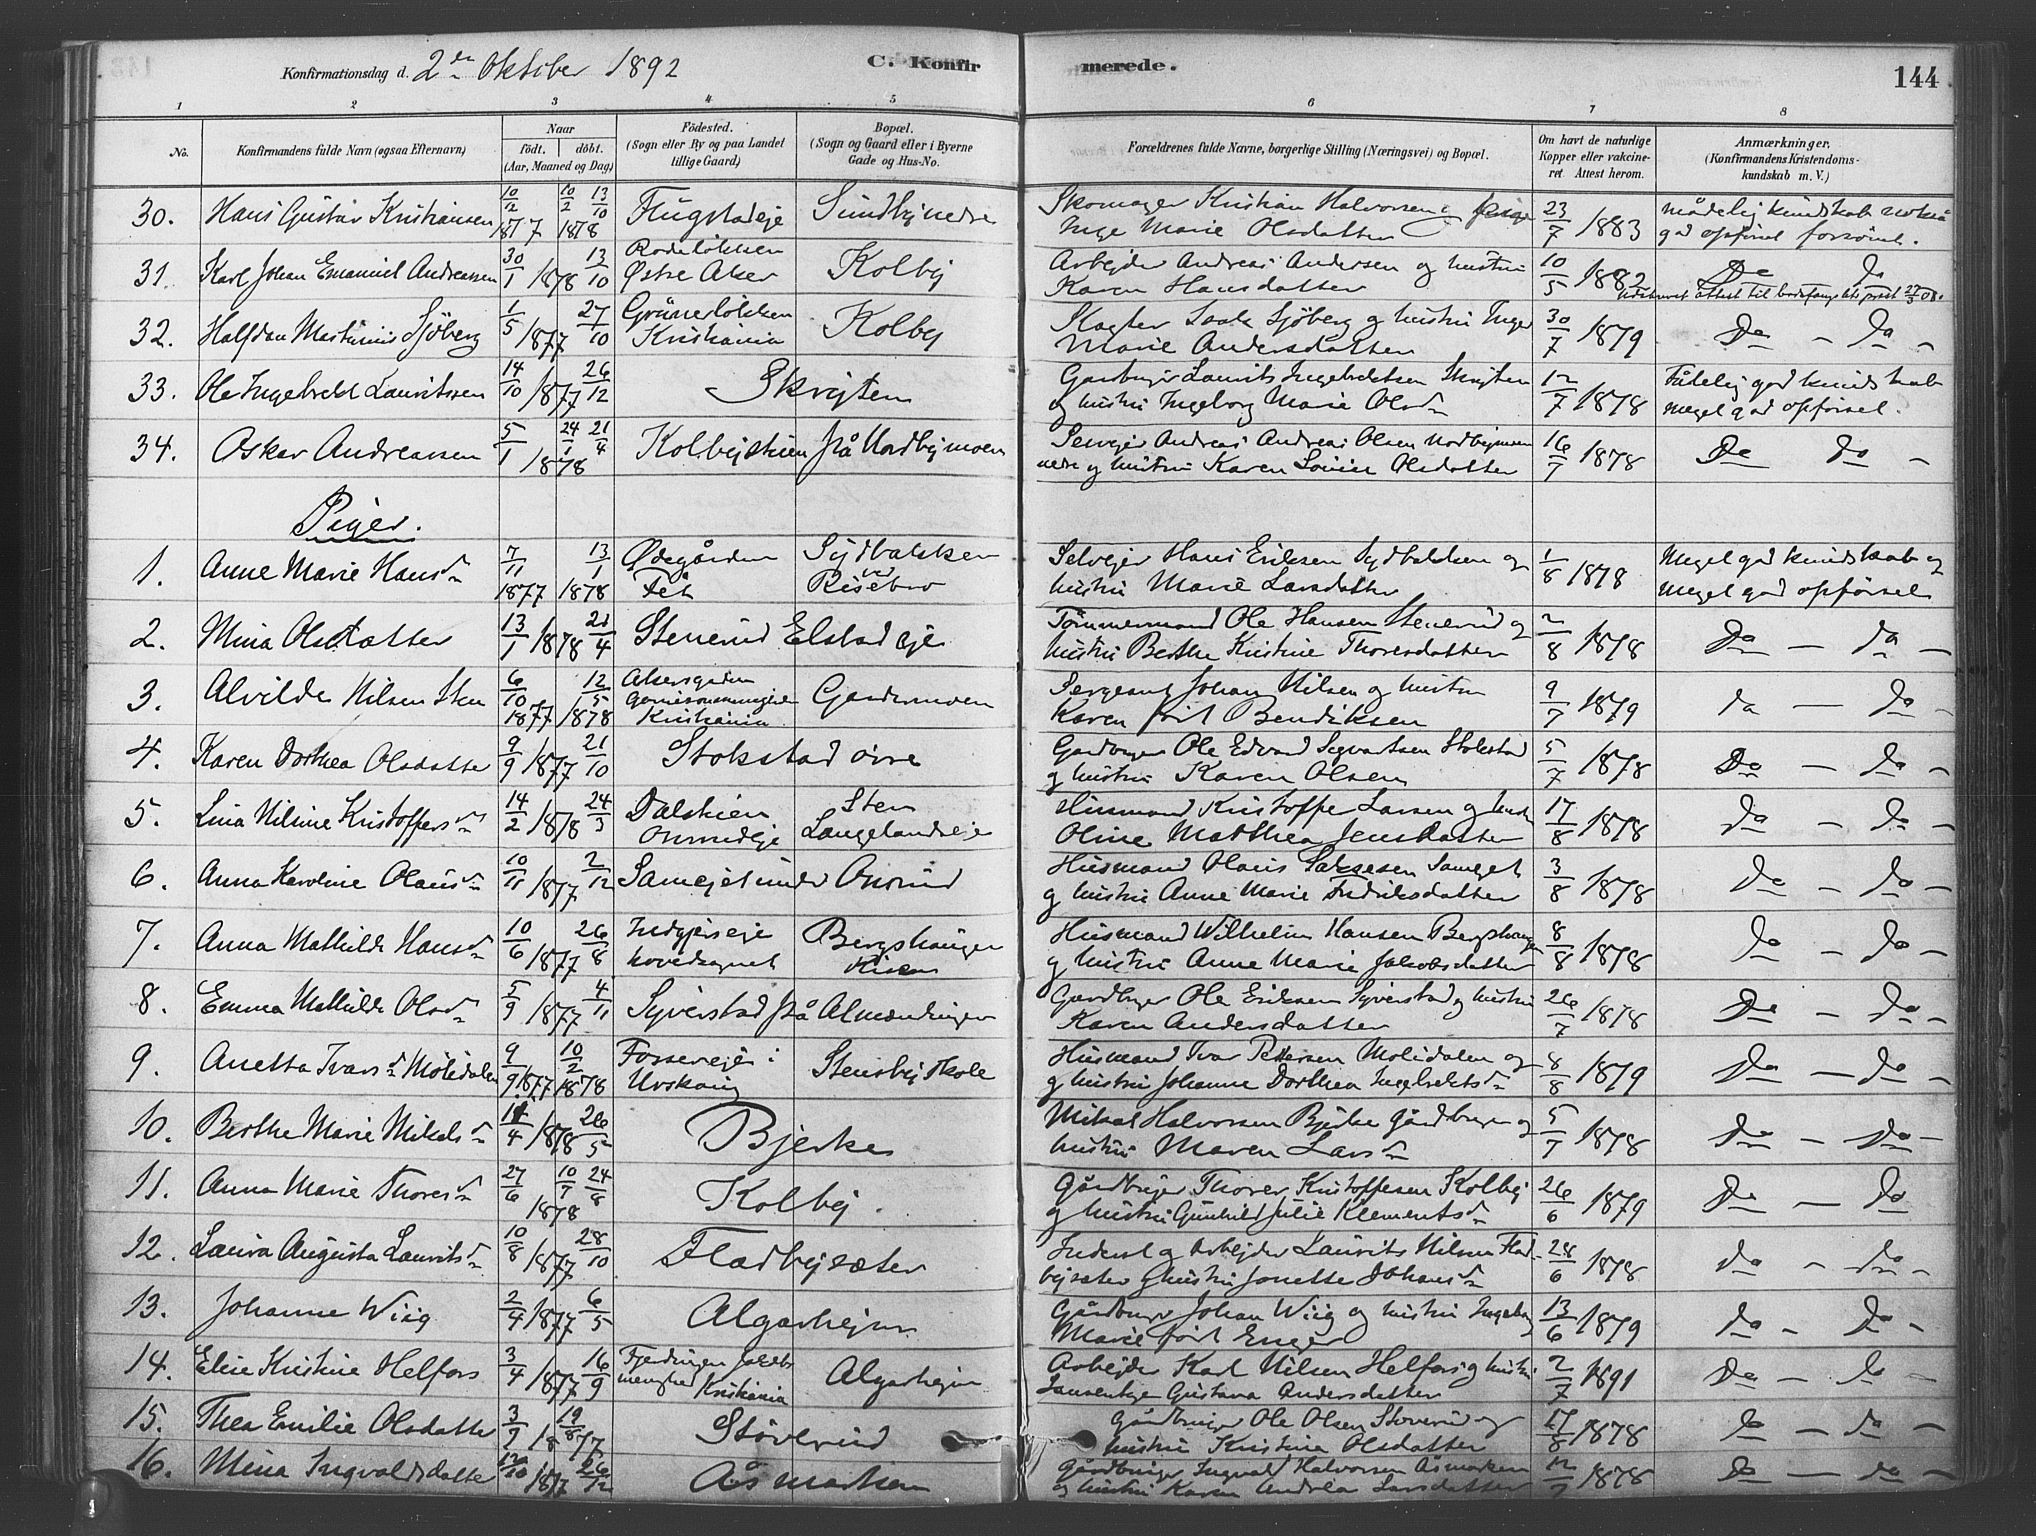 Konfirmationsdag d. 2den Oktober 1892
C. Konfirmerede.
144
1 2 3 4 5 6 7 8
No.
Konfirmandens fulde Navn (ogsaa Efternavn)
Naar
födt. döbt.
(Aar, Maaned og Dag)
Födested.
(Sogn eller By og paa Landet
tillige Gaard)
Bopæl.
(Sogn og Gaard eller i Byerne
Gade og Hus-No.
Forældrenes fulde Navne, borgerlige Stilling (Næringsvei) og Bopæl.
Om havt de naturlige
Kopper eller vakcine-
ret. Attest herom.
Anmærkninger.
(Konfirmandens Kristendoms-
kundskab m. V.)
30. Hans Gustav Kristiansen 10/12 1877 10/2 13/10 1878 Flugstadeje Sundby nedre Skomager Kristian Halvorsen pige Inge Marie Olsdatter 23/7 1883 mådelig kundskab nokså god opførsel forsømt.
31. Karl Johan Emanuel Andreassen 30/1 1878 13/10 Rodeløkken Østre Aker Kolby Arbejder Andreas Andersen og hustru Karen Hansdatter 10/5 1882 Do do
Udskrevet attest til bodsfængslets præst 27/3 08.
32. Halfdan Martinius Sjöberg 1/5 1877 27/10 Grünerløkken Kristiania Kolby Isak Sjöberg og hustru Inger Marie Andersdatter 30/7 1879 Do - do -
33. Ole Ingebrekt Lauritssen 14/10 1877 26/12 Skrigten Gardbruger Laurits Ingebrektsen Skrigten og hustru Ingeborg Marie Olsdr 12/7 1878 Tålelig god kundskab meget god opførsel.
34. Oskar Andreassen 5/1 1878 24/1 21/4 Kolbystuen på Nordbymoen Selvejer Andreas Andreas Olsen Nordbymoen nedre og hustru Karen Lovise Olsdatter 16/7 1878 Do do -
Piger.
1. Anne Marie Hansdr 7/11 1877 13/1 1878 Ødegården Fet Sydbakken ved Risebro Selvejer Hans Eriksen Sydbakken og hustru Marie Larsdatter 1/8 1878 Meget god kundskab og meget god opførsel
2. Mina Olsdatter 13/1 1878 21/4 Stenerud Elstad eje Tømmermand Ole Hansen Stenerud og hustru Berthe Kristine Thoresdatter 2/8 1878 Do - do -
3. Alvilde Nilsen Sten 6/10 1877 12/5 1878 Akersgaden Garnisonsmenighed Kristiania Gardermoen Sergeant Johan Nilsen og hustru Karen født Bendiksen 9/7 1879 do - do -
4. Karen Dorthea Olsdatter 9/9 1877 21/10 Stokstad øvre Gardbruger Ole Edvard Sigvartsen Stokstad og hustru Karen Olsen 5/7 1878 Do - do -
5. Lina Nilsine Kristoffersdr 14/2 1878 24/3 Dalskien Onsrudeje Sten Langelandseje Husmand Kristoffer Larsen og hustru Oline Matthea Jensdatter 17/8 1878 do - do -
6. Anna Karoline Olausdr 10/11 1877 2/12 Samejet under Onsrud Husmand Olaus Saksesen Samejet og hustru Anne Marie Fredriksdatter 3/8 1878 Do - do -
7. Anna Mathilde Hansdr 10/6 1877 26/8 Indgjerseje hovedsognet Bergshaugen Husmand Wilhelm Hansen Bergshaugen og hustru Anne Marie Jakobsdatter 8/8 1878 Do - do -
8. Emma Mathilde Olsdr 5/9 1877 4/11 Syverstad på Almendingen Gardbruger Ole Eriksen Syverstad og hustru Karen Andersdatter 26/7 1878 Do - Do -
9. Anetta Ivarsdr Molidalen 9/9 1877 10/2 1878 Fosservejen i Urskoug Stensby skole Husmand Ivar Pettersen Molidalen og og hustru Johanne Dorthea Ingebrektsdr 8/8 1879 Do - do -
10. Berthe Marie Mikelsdr 11/4 1878 26/5 Bjerke Mikal Halvorsen Bjerke Gårdbruger og hustru Maren Larsdr 5/7 1878 Do - Do -
11. Anna Marie Thoresdr 27/6 1878 10/7 24/8 Kolby. Gårdbruger Thorer Kristoffersen Kolby og hustru Gunhild Julie Klementsdr 26/6 1879 Do - do
12. Laura Augusta Lauritsdr 10/8 1877 28/10 Fladbysæter Inderst og Arbejder Laurits Nilsen Fladbysæter og hustru Jonette Johansdr 28/6 1878 do - do -
13. Johanne Wiig 2/4 1877 6/5 Algarhejm Gårdbruger Johan Wiig og hustru Ingeborg Marie født Enger 13/6 1879 do - Do -
14. Elise Kristine Helfors 3/4 1877 16/9 Fjerdingen Jakobs menighed Kristiania Algarhejm Arbejder Karl Nilsen Helfors og hustru Gustava Andersdatter 2/7 1891 Do - do -
15. Thea Emilie Olsdatter 3/9 1877 19/8 Stövrud Gårdbruger Ole Olsen Stoverud og hustru Kristine Olsdatter 17/8 1878 Do - do -
16. Mina Ingvaldsdatter 12/10 1877 26/12 Åsmarken Gårdbruger Ingvald Halvorsen Åsmarken og hustru Karen Andrea Larsdatter 12/7 1878 Do - do -